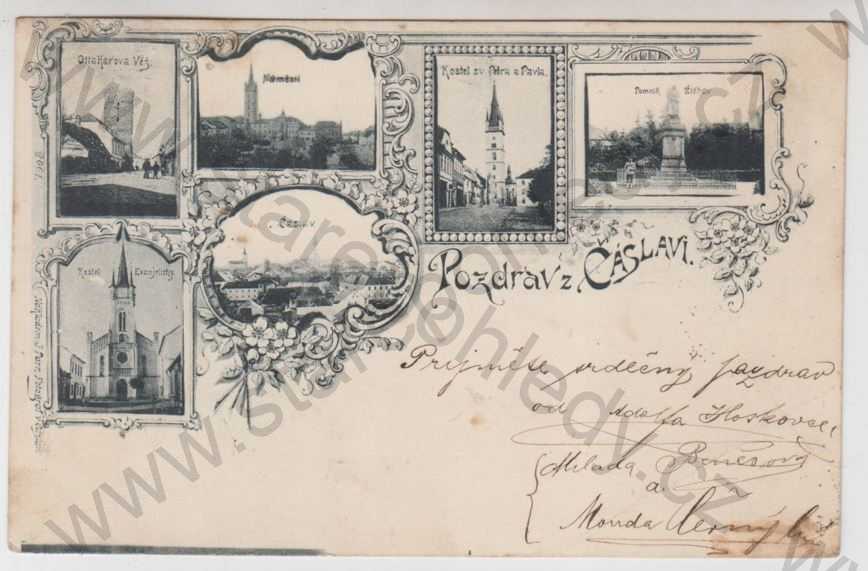 Ottakarova Věž.
Náměstí
Kostel sv. Petra a Pavla.
Pomník Žižkův
Čáslav
Kostel Evanjelický
Pozdrav z Čáslavi.
Prijměte srdečný pozdrav
od Adolfa Hoskovce
Milada Benešová
a
Černý
www.starepohledy.cz